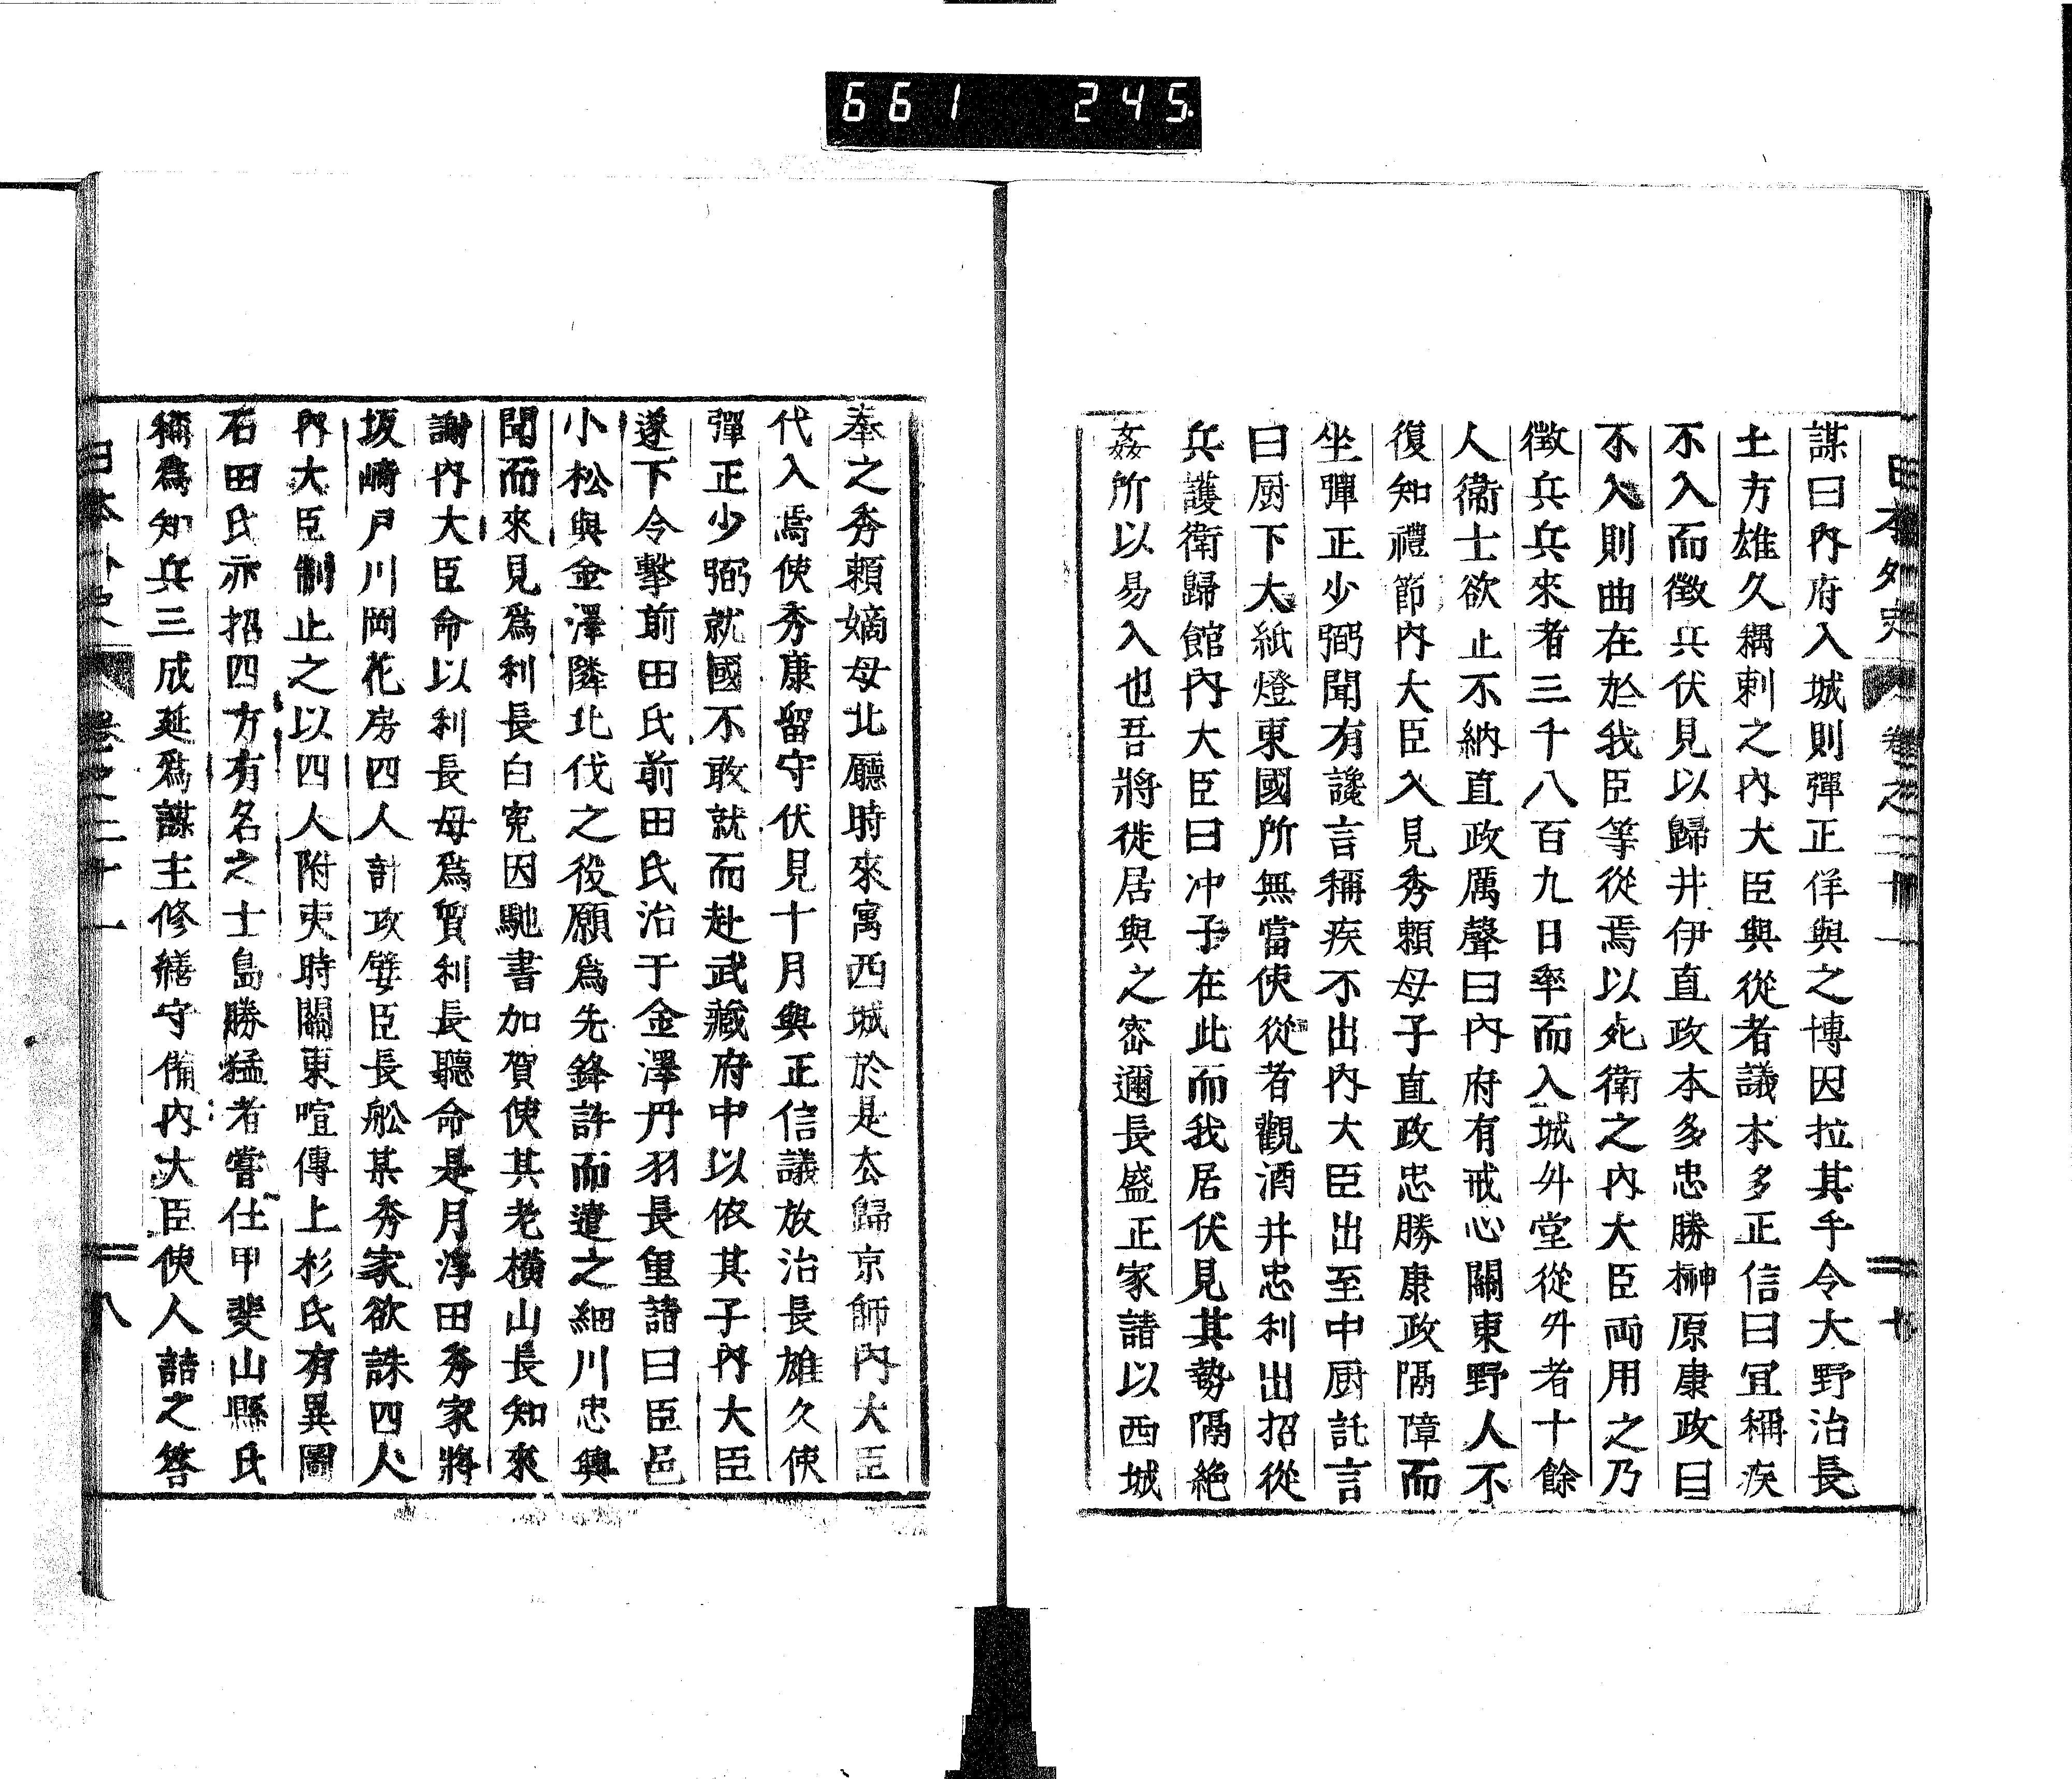 661 245
日本外史 卷之二十一 七
謀曰內府入城則彈正佯與之博因拉其手令大野治長
土方雄久耦刺之內大臣與從者議本多正信曰宜稱疾
不入而徵兵伏見以歸井伊直政本多忠勝榊原康政曰
不入則曲在於我臣等從焉以死衛之內大臣両用之乃
徵兵兵來者三千八百九日率而入城外堂從外者十餘
人衞士欲止不納直政厲聲曰內府有戒心關東野人不
復知禮節內大臣入見秀賴母子直政忠勝康政隔障而
坐彈正少弼聞有讒言稱疾不出內大臣出至中厨託言
曰厨下大紙燈東國所無當使從者觀酒井忠利出招從
兵護衛歸館內大臣曰冲子在此而我居伏見其勢隔絶
姦所以易入也吾將徙居與之密邇長盛正家請以西城
奉之秀賴嫡母北廳時來寓西城於是去歸京師內大臣
代入焉使秀康留守伏見十月與正信議放治長雄久使
彈正少弼就國不敢就而赴武藏府中以依其子內大臣
遂下令擊前田氏前田氏治于金澤丹羽長重請曰臣邑
小松與金澤隣北伐之役願爲先鋒許而遣之細川忠興
聞而來見爲利長白寃因馳書加賀使其老橫山長知來
謝內大臣命以利長母爲質利長聽命是月浮田秀家將
坂崎戶川岡花房四人計攻嬖臣長舩某秀家欲誅四人
內大臣制止之以四人附吏時關東喧傳上杉氏有異圖
石田氏亦招四方有名之士島勝猛者嘗仕甲斐山縣氏
稱爲知兵三成延爲謀主修繕守備內大臣使人詰之答
日本外史 卷之二十一 八